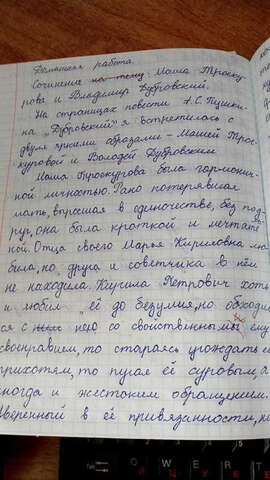 Домашняя работа.
Сочинение на тему Маша Троеку
рова и Владимир Дубровский.
На страницах повести А.С. Пушки-
на „Дубровский" я встретилась с
двумя яркими образами – Машей Трое-
куровой и Володей Дубровским
Маша Троекурова была гармонич-
ной личностью. Рано потерявшая
мать, взросшая в одиночестве, без под
руг, она была кроткой и мечтате
ной. Отца своего Марья Кириловна лю-
била, но, друга и советчика в нём
не находила. Кирила Петрович хоть
и любил „её до безумия, но обходил
ся с нею со свойственным ему
своенравием, то стараясь угождать её
прихотям, то пугая её суровым, а
иногда и жестоким обращением.
Уверенный в её привязанности, не